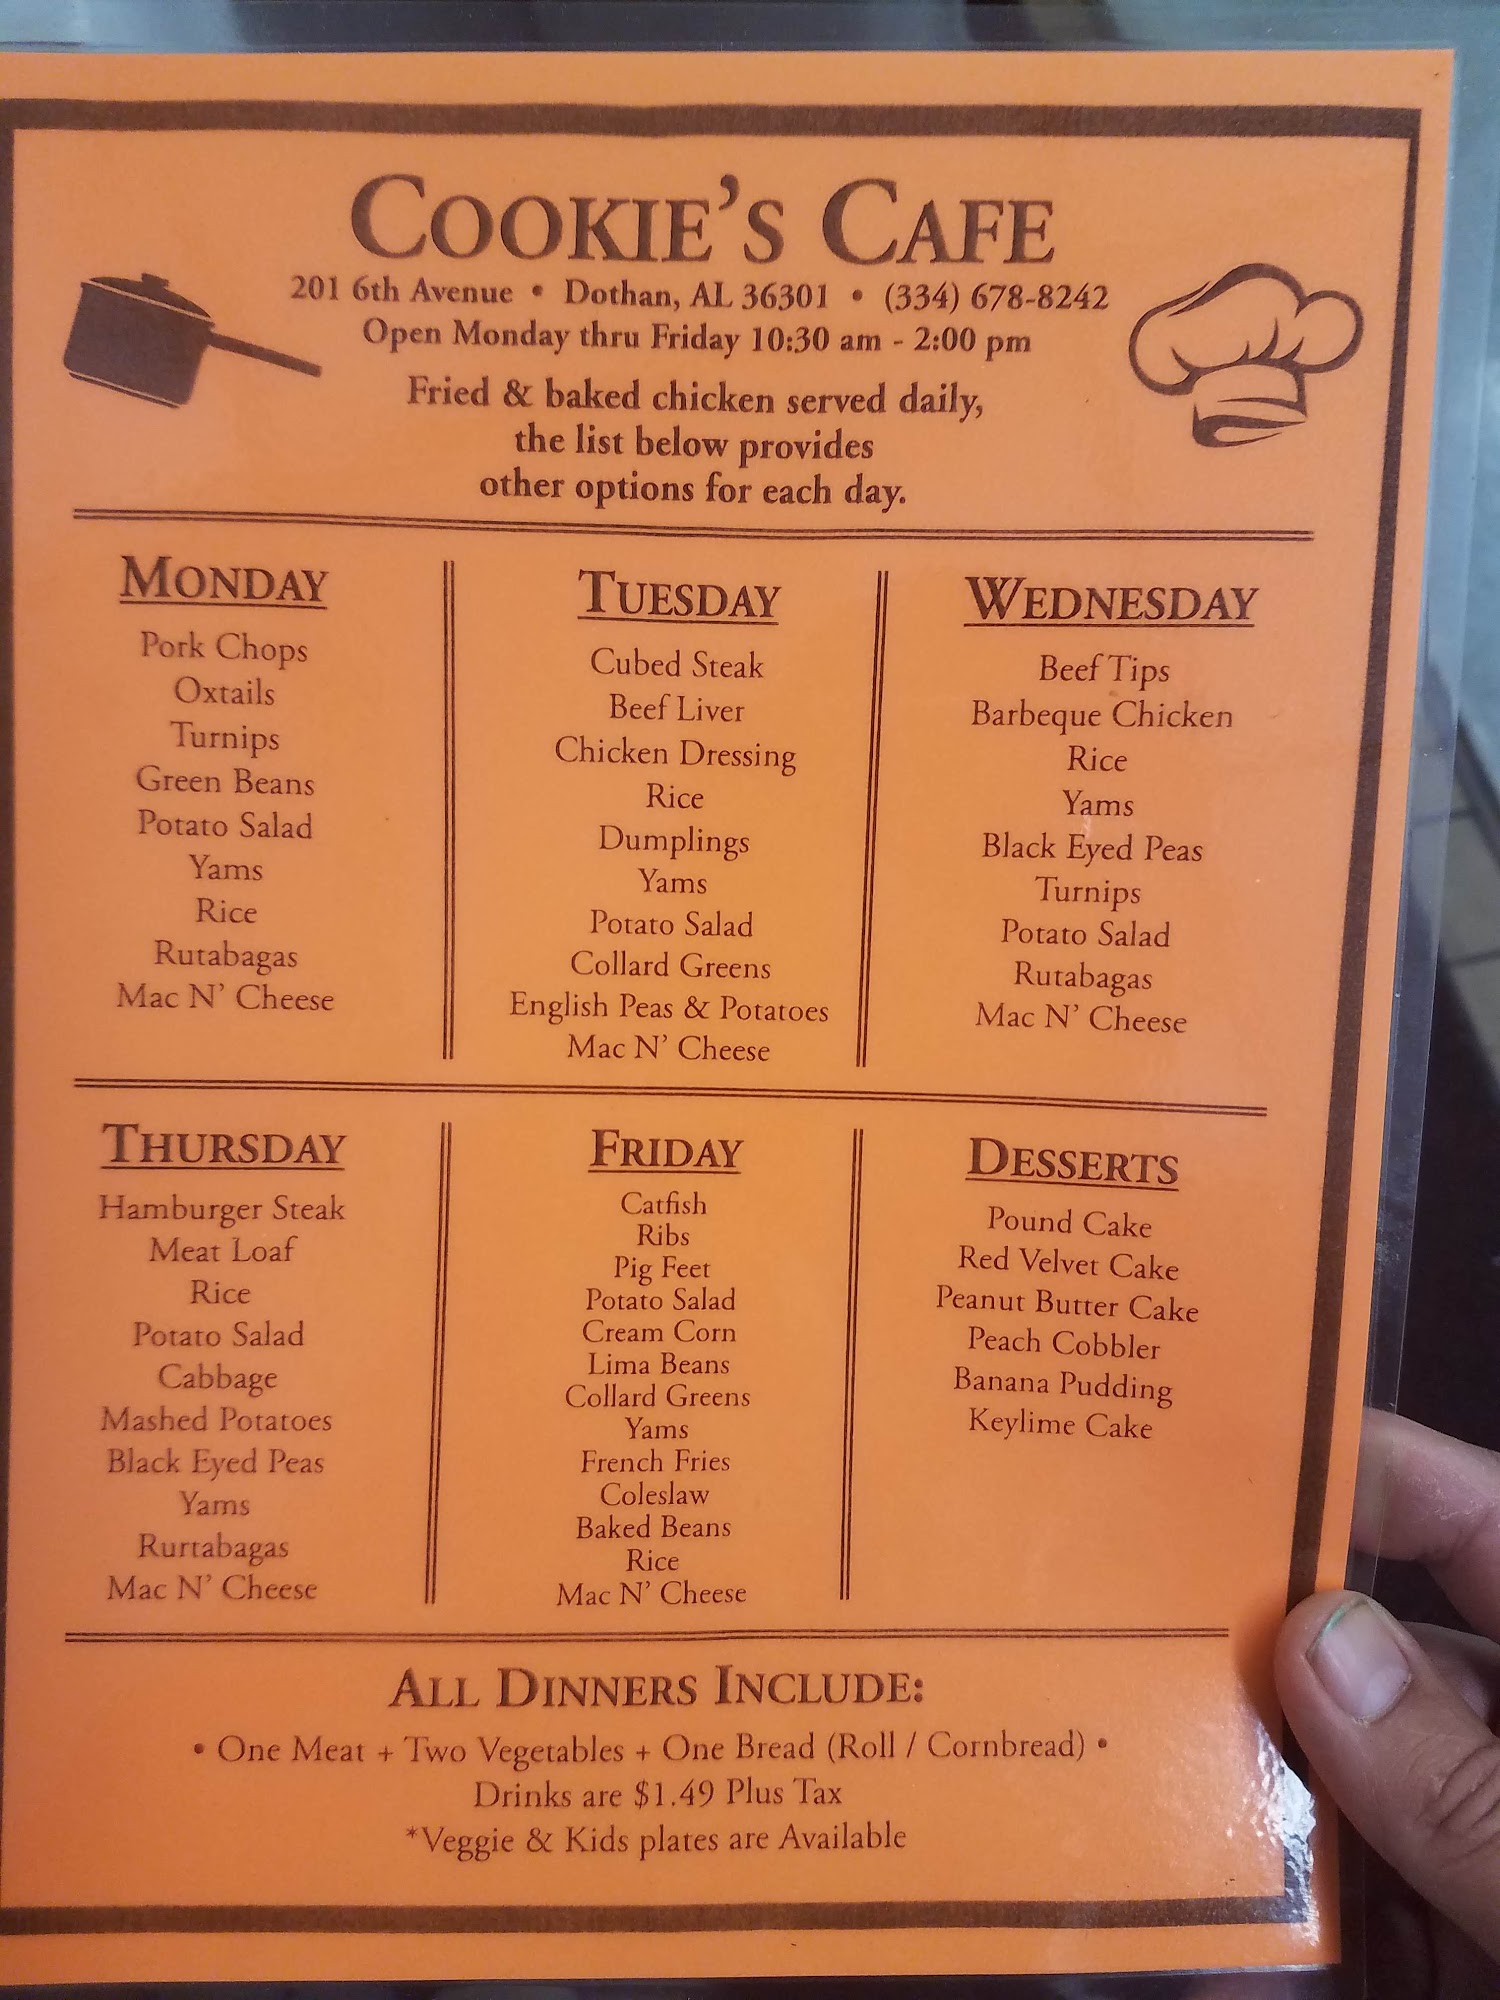 COOKIE'S CAFE
201 6th Avenue • Dothan, AL 36301 • (334) 678-8242
Open Monday thru Friday 10:30 am - 2:00 pm
Fried & baked chicken served daily,
the list below provides
other options for each day.
MONDAY
Pork Chops
Oxtails
Turnips
Green Beans
Potato Salad
Yams
Rice
Rutabagas
Mac N' Cheese
TUESDAY
Cubed Steak
Beef Liver
Chicken Dressing
Rice
Dumplings
Yams
Potato Salad
Collard Greens
English Peas & Potatoes
Mac N' Cheese
WEDNESDAY
Beef Tips
Barbeque Chicken
Rice
Yams
Black Eyed Peas
Turnips
Potato Salad
Rutabagas
Mac N' Cheese
THURSDAY
Hamburger Steak
Meat Loaf
Rice
Potato Salad
Cabbage
Mashed Potatoes
Black Eyed Peas
Yams
Rurtabagas
Mac N' Cheese
FRIDAY
Catfish
Ribs
Pig Feet
Potato Salad
Cream Corn
Lima Beans
Collard Greens
Yams
French Fries
Coleslaw
Baked Beans
Rice
Mac N' Cheese
DESSERTS
Pound Cake
Red Velvet Cake
Peanut Butter Cake
Peach Cobbler
Banana Pudding
Keylime Cake
ALL DINNERS INCLUDE:
• One Meat + Two Vegetables + One Bread (Roll / Cornbread) •
Drinks are $1.49 Plus Tax
*Veggie & Kids plates are Available